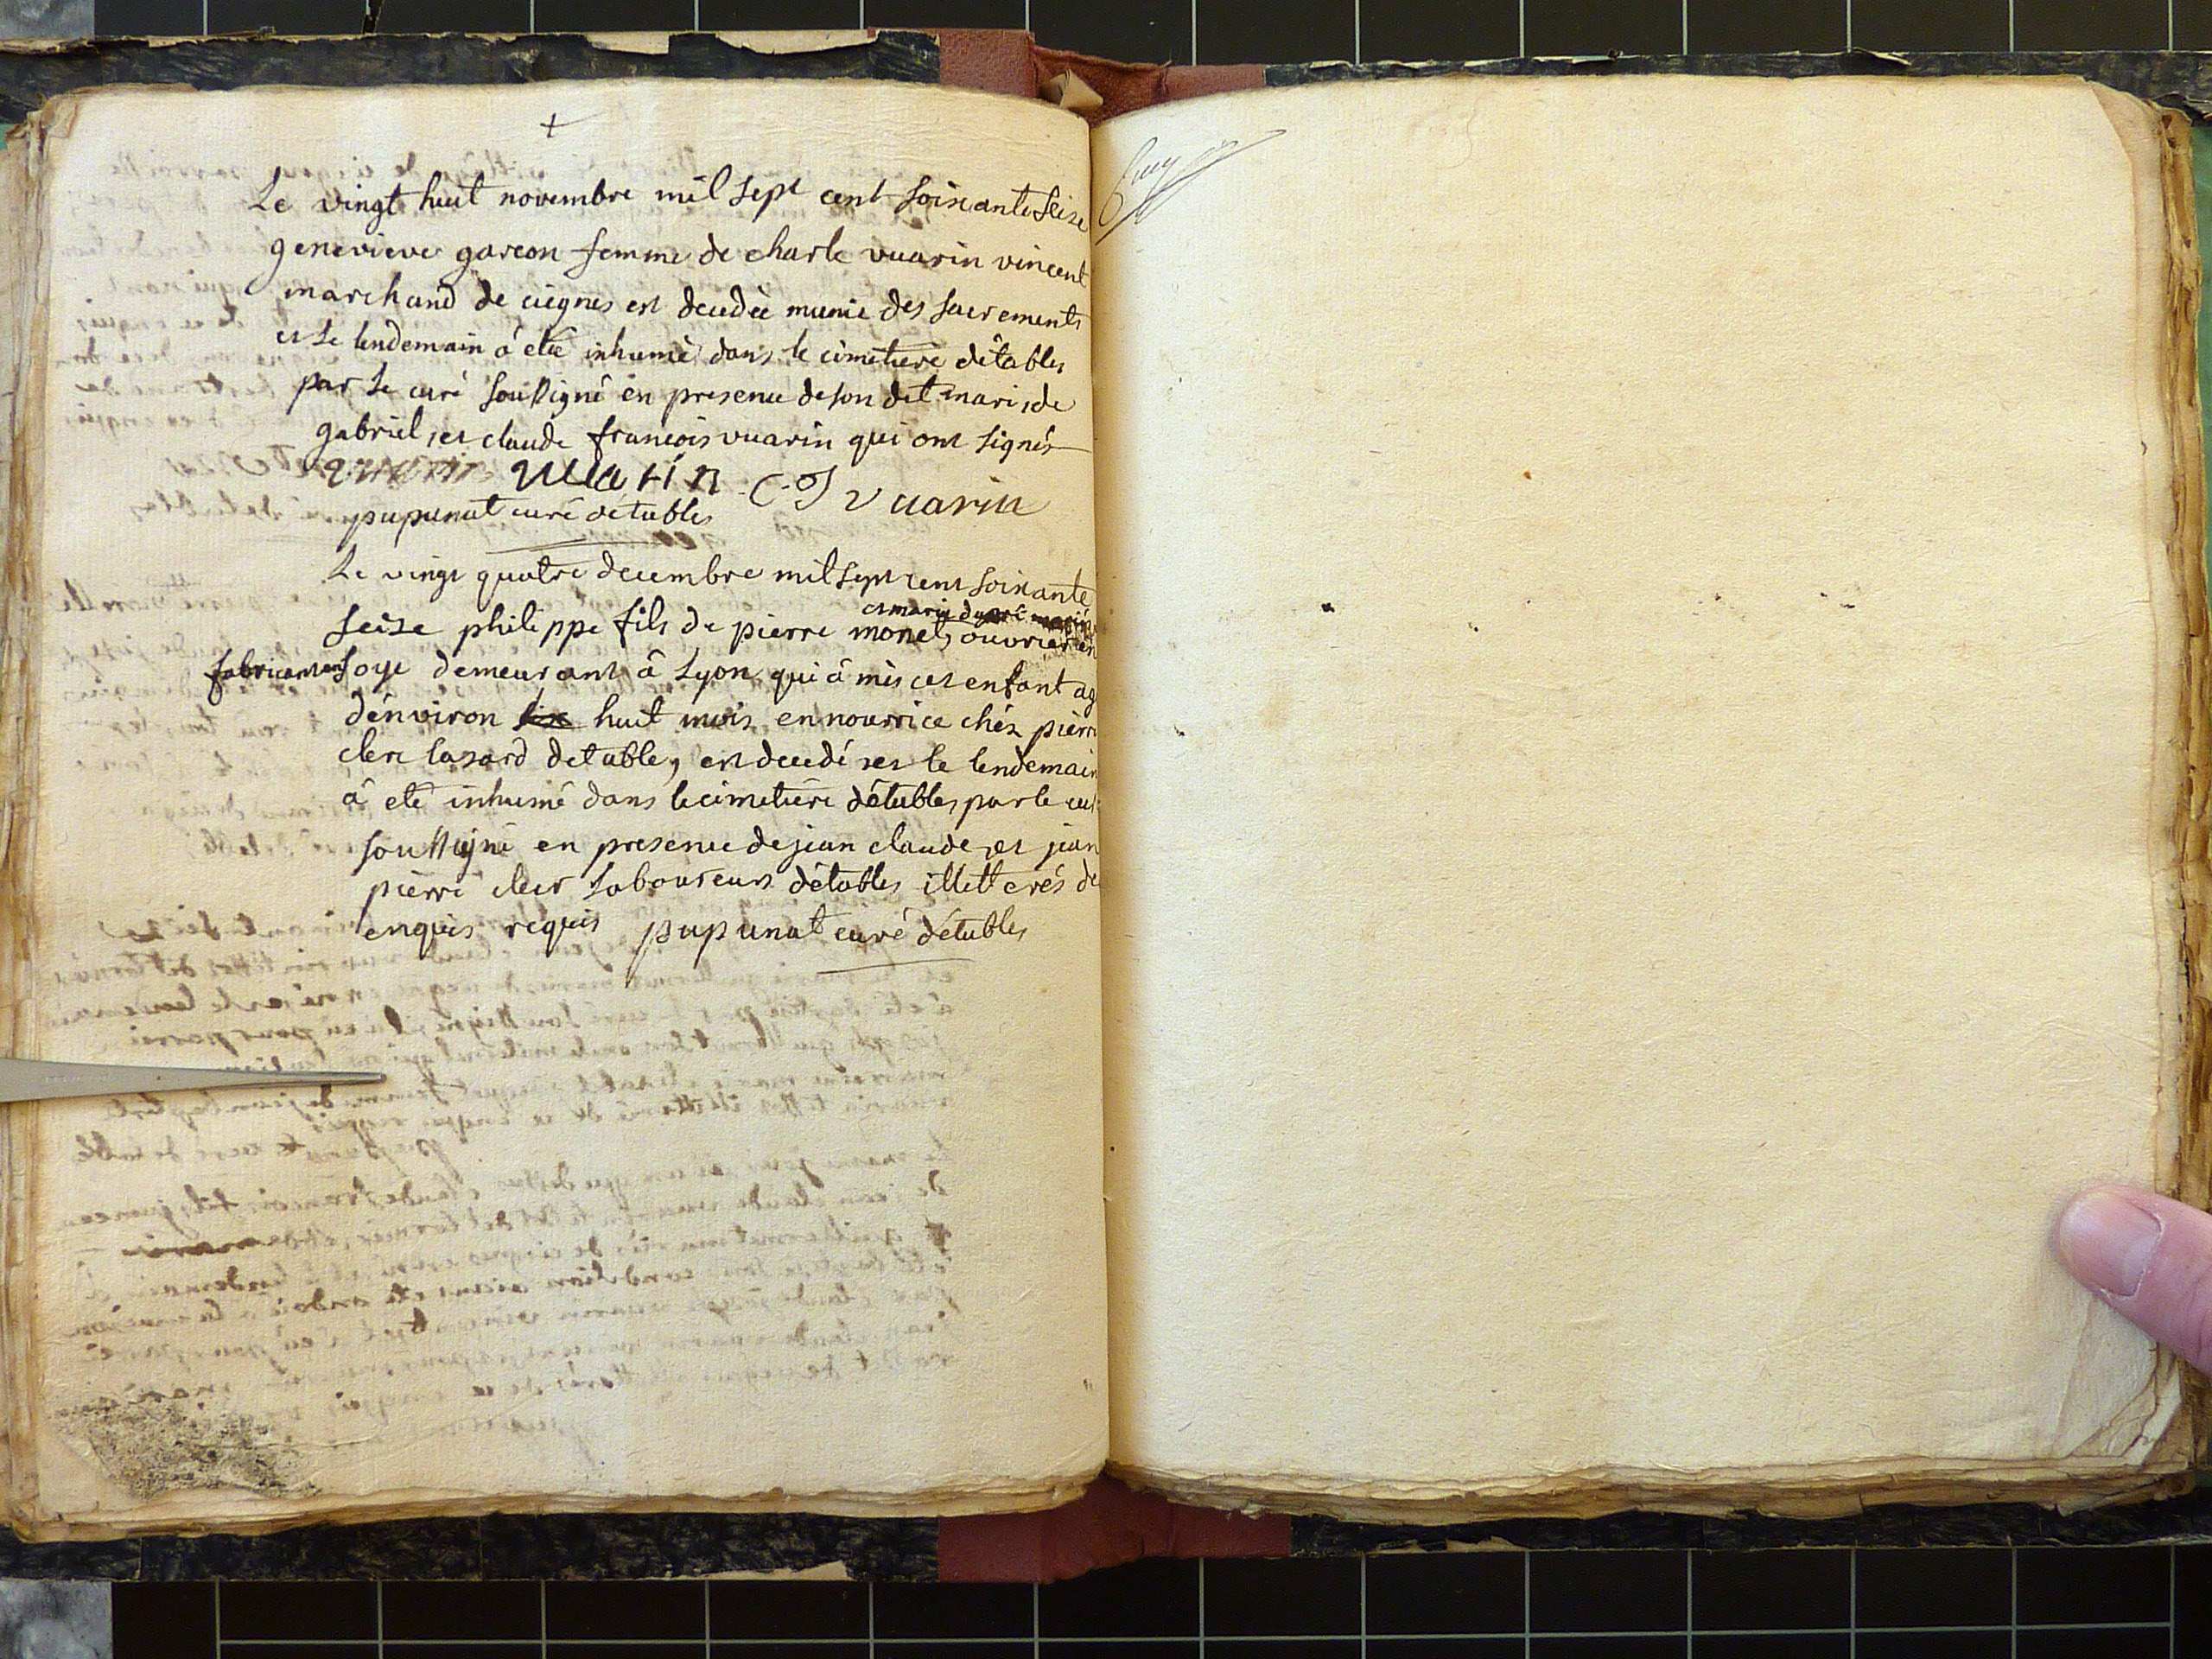 +
Le vingt huit novembre mil sept cent soixante seise
genevieve garcon femme de charle vuarin vincent
marchand de ciegnes est decedèe munie des sacrements
et le lendemain à eté inhumè dans le cimetiere détables
par le curé soussigné en presence de son dit mari, de
gabriel, et claude francois vuarin qui ont signés
vuarin C. F vuarin
pupunat curé détables
Le vingt quatre decembre mil sept cent soixante
et marie
seise philippe fils de pierre monet, ouvrier en
fabricant en soye demeurant à Lyon qui à mis cet enfant ag
dénviron six huit mois en nourrice chés pierre
clerc lasard detables, est decedé, et le lendemain
à eté inhumé dans le cimetiére détables par le curé
soussigné en presence de jean claude, et jean
pierre clerc laboureurs détables illetterés de
enquis requis pupunat curé détables